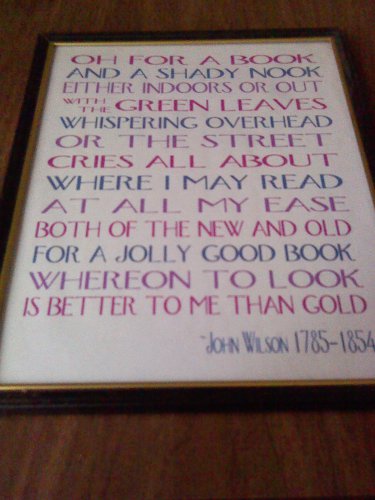 OH FOR A BOOK
AND A SHADY NOOK
EITHER INDOORS OR OUT
WITH THE GREEN LEAVES
WHISPERING OVERHEAD
OR THE STREET
CRIES ALL ABOUT
WHERE I MAY READ
AT ALL MY EASE
BOTH OF THE NEW AND OLD
FOR A JOLLY GOOD BOOK
WHEREON TO LOOK
IS BETTER TO ME THAN GOLD
~JOHN WILSON 1785-1854